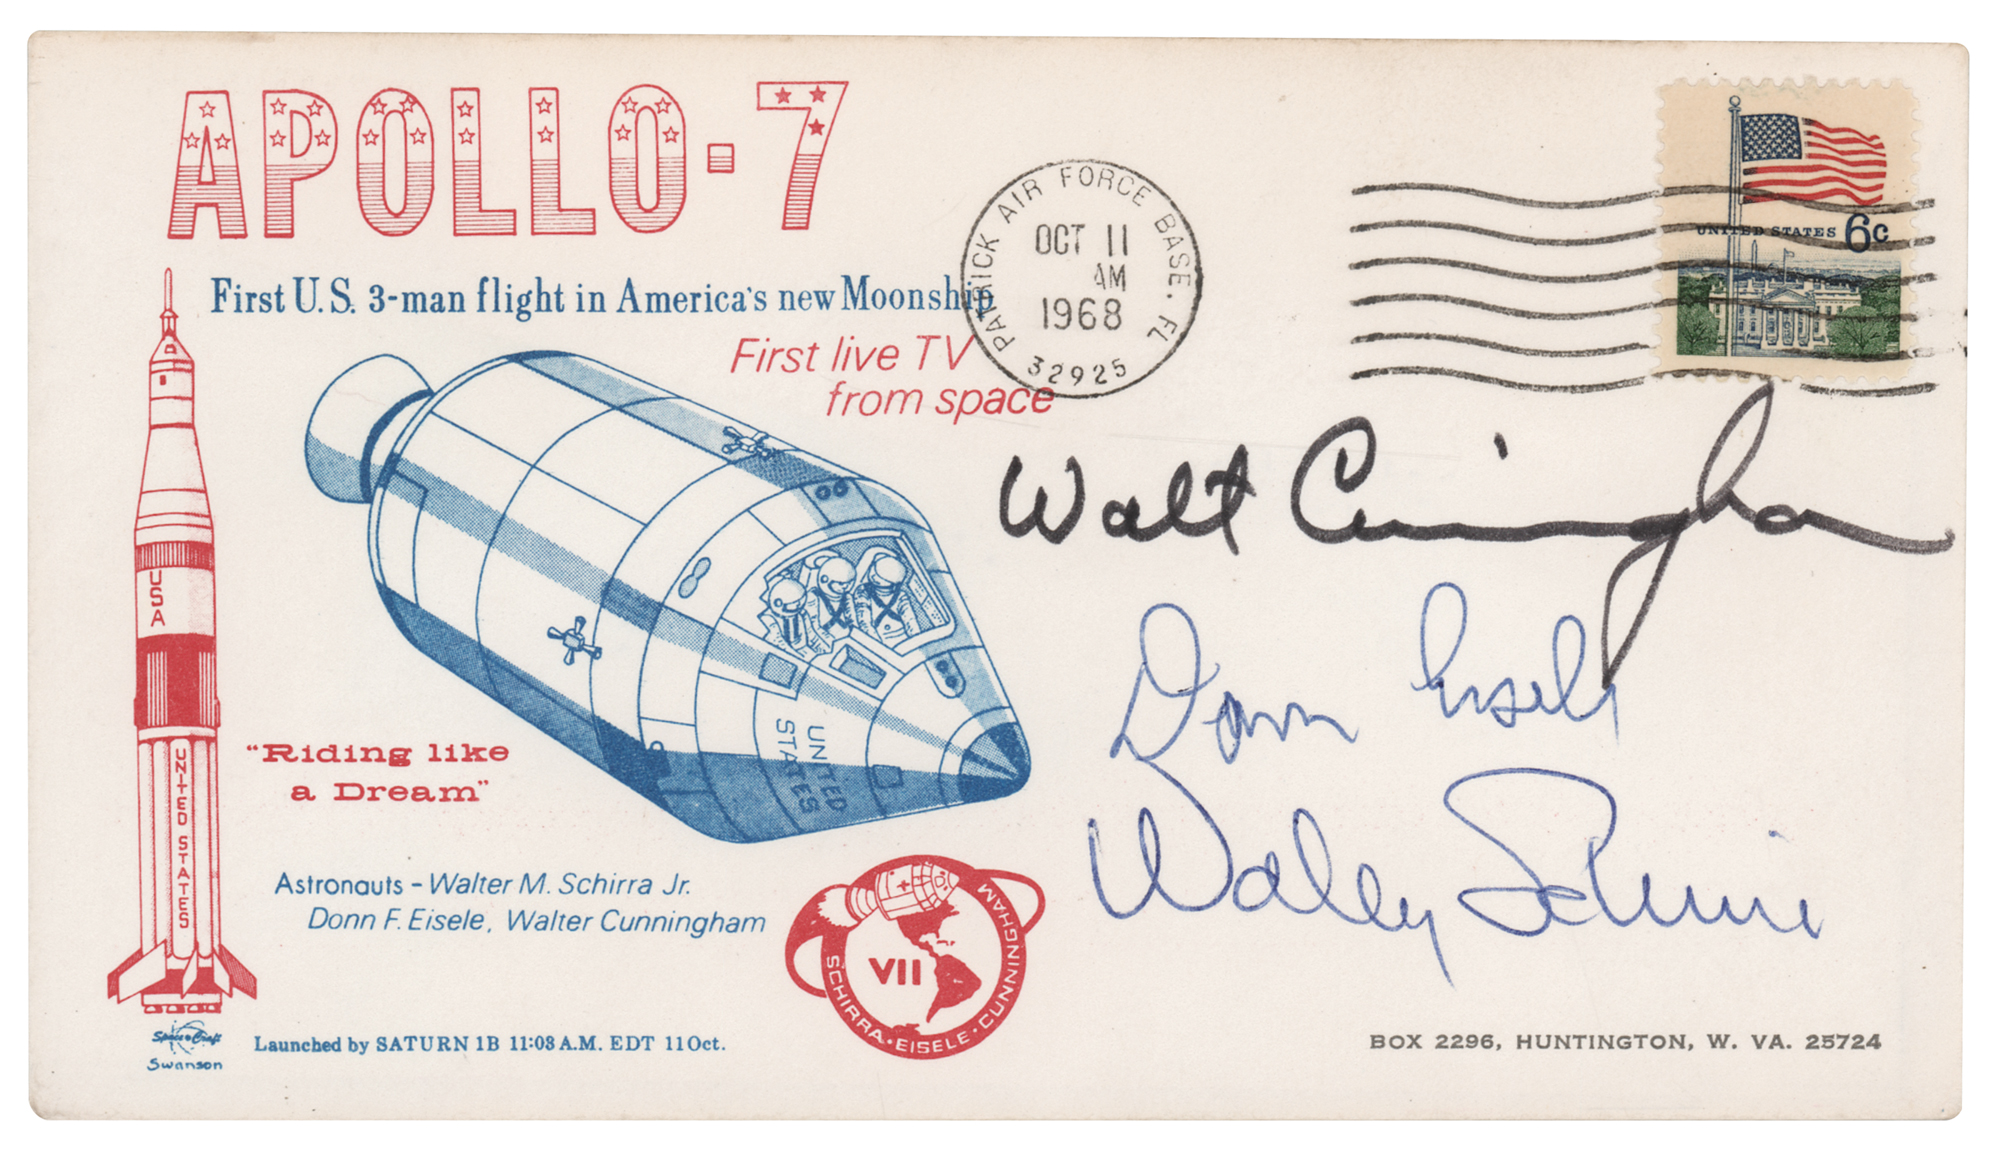 APOLLO-7
First U.S. 3-man flight in America's new Moonship
First live TV
from space
PATRICK AIR FORCE BASE. FL
OCT 11
AM
1968
32925
UNITED STATES 6c
Walt Cunningham
Donn Eisele
Wally Schirra
USA
UNITED STATES
UNITED
STATES
"Riding like
a Dream"
Astronauts - Walter M. Schirra Jr.
Donn F. Eisele, Walter Cunningham
VII
SCHIRRA • EISELE • CUNNINGHAM
Space Craft
Swanson
Launched by SATURN 1B 11:03 A.M. EDT 11 Oct.
BOX 2296, HUNTINGTON, W. VA. 25724